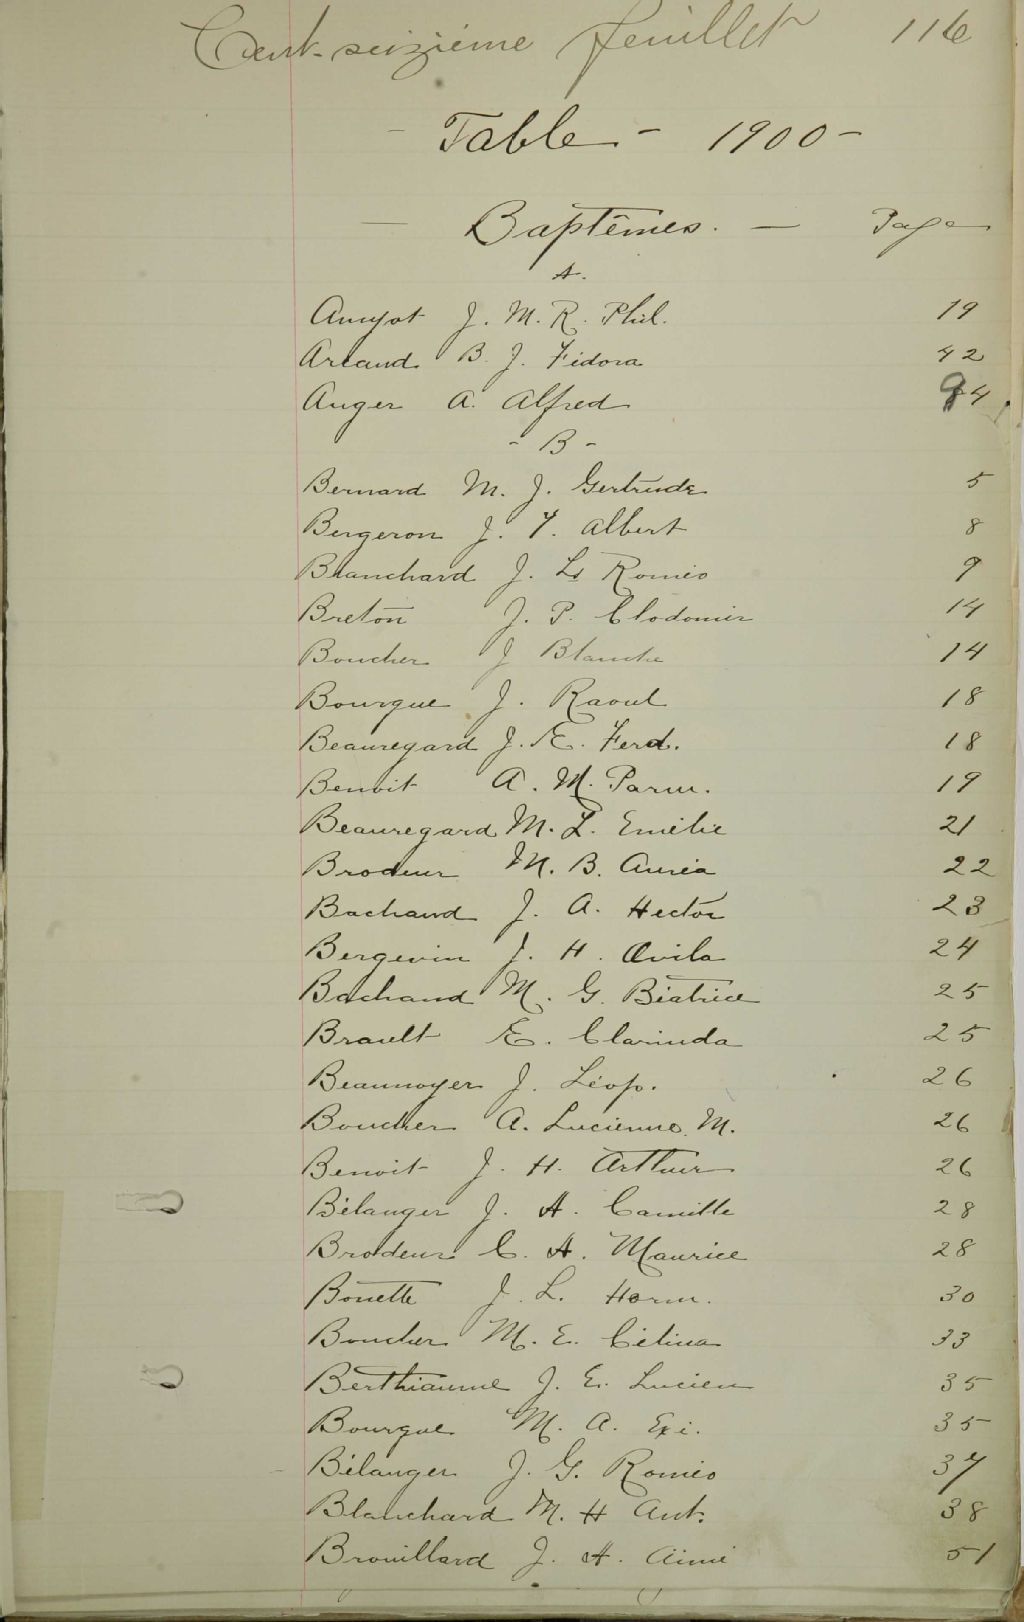 Cent-seizième feuillet 116
- Table - 1900 -
- Baptêmes. - Page
A.
Amyot J. M. R. Phil. 19
Arcand B. J. Fidora 42
Auger A. Alfred 94
- B -
Bernard M. J. Gertrude 5
Bergeron J. F. Albert 8
Blanchard J. Ls Roméo 9
Breton J. P. Clodomir 14
Boucher J Blanche 14
Bourque J. Raoul 18
Beauregard J. E. Ferd. 18
Benoit A. M. Parm. 19
Beauregard M. L. Emélie 21
Brodeur M. B. Auréa 22
Bachand J. A. Hector 23
Bergevin J. H. Ovila 24
Bachand M. G. Béatrice 25
Brault E. Clarinda 25
Beaunoyer J. Léop. 26
Boucher A. Lucienne M. 26
Benoit J. H. Arthur 26
Bélanger J. A. Camille 28
Brodeur C. A. Maurice 28
Bonette J. L. Horm. 30
Boucher M. E. Célina 33
Berthiaume J. E. Lucien 35
Bourque M. A. Exi. 35
Bélanger J. G. Roméo 37
Blanchard M. H Ant. 38
Brouillard J. A. Aimé 51